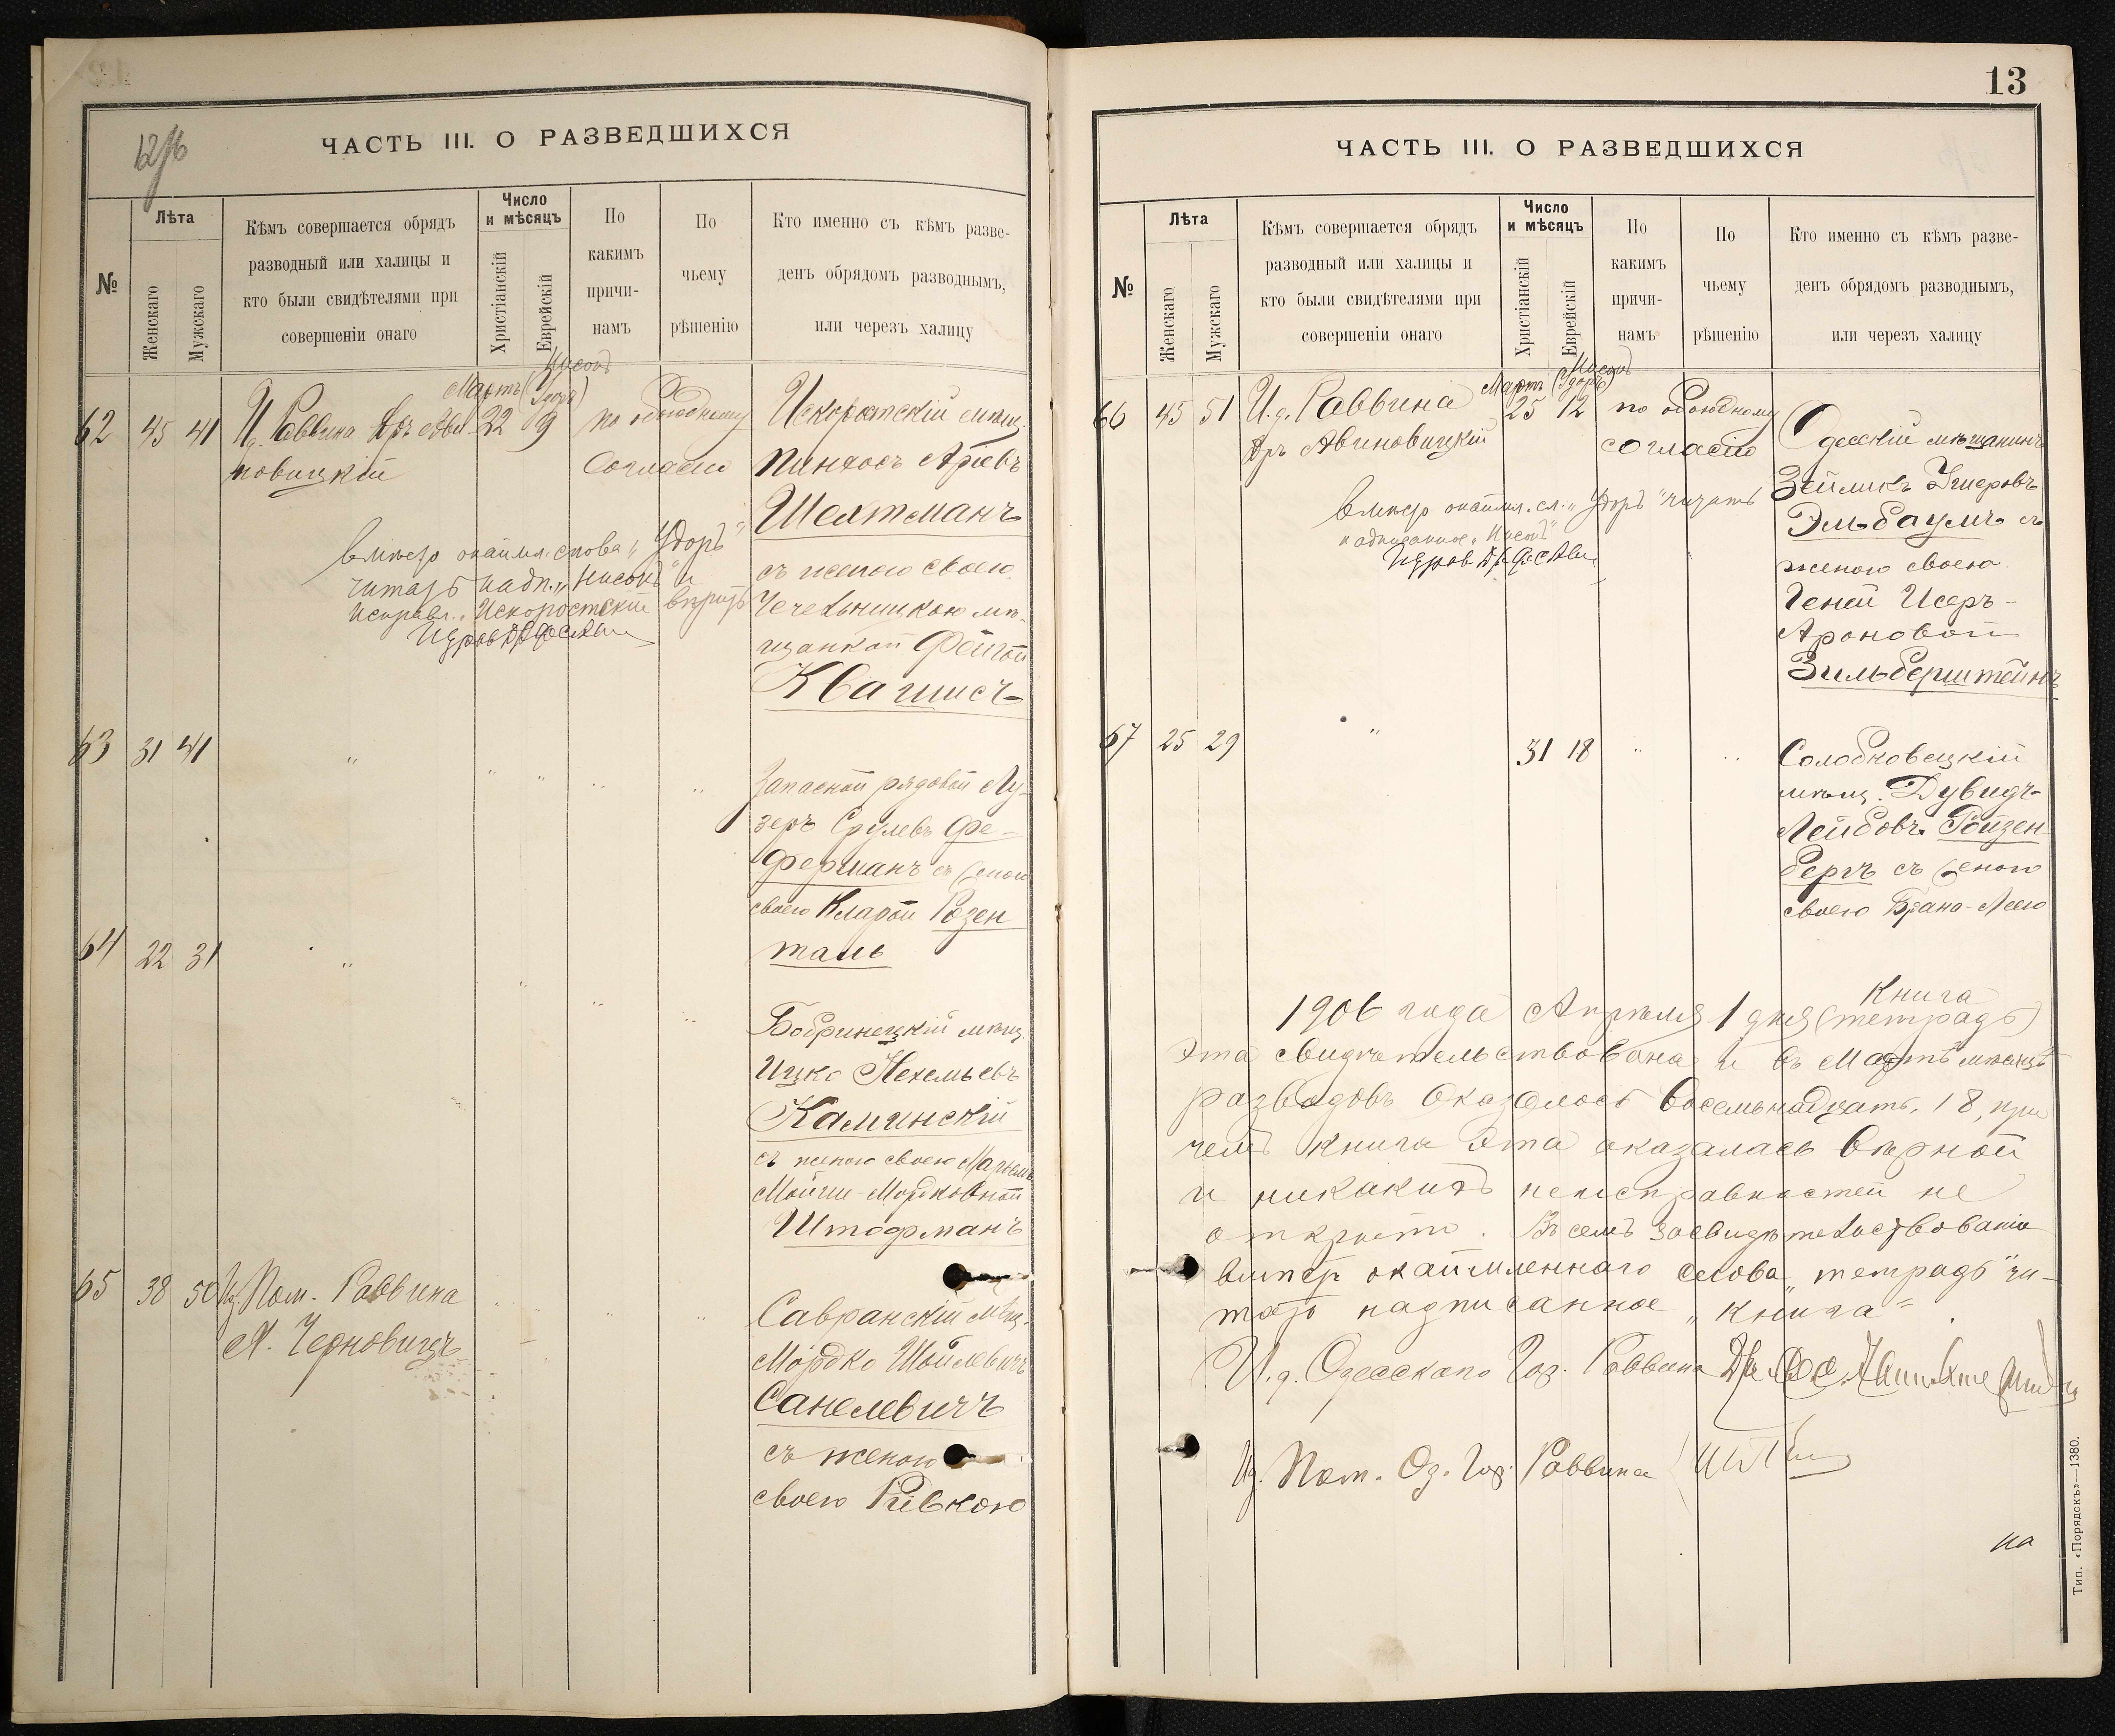 ЧАСТЬ III. О РАЗВЕДШИХСЯ
№
Лѣта
Женскаго
Мужскаго
Кѣмъ совершается обрядъ
разводный или халицы и
кто были свидѣтелями при
совершеніи онаго
Число
и мѣсяцъ
Христіанскій
Еврейскій
По
какимъ
причи-
намъ
По
чьему
рѣшенію
Кто именно съ кѣмъ разве-
денъ обрядомъ разводнымъ,
или черезъ халицу
Нисонъ
Мартъ (Удоръ)
62 45 41 И.д. Раввина Д-ръ Ави- 22 9 по обоюдному
новицкій
согласію
Искоростскій мѣщ.
Пинхосъ Аріевъ
Шехтманъ
съ женою своею
Чечельницкою мѣ-
щанкой Фейгой
Квашисъ
вмѣсто окаймл. слова „Удоръ"
читать надп. „Нисонъ" и
исправл. „Искоростскій" вѣрить
63 31 41 " " " " "
Запасной рядовой Лу-
зеръ Срулевъ Фе-
ферманъ съ женою
своею Кларой Розен
таль
64 22 31 " " " "
Бобринецкій мѣщ.
Ицко Нехемьевъ
Каминскій
съ женою своею Марьей
Мойше-Мордковной
Штофманъ
65 38 50 И.д. Пом. Раввина
М. Черновицъ
Савранскій мѣщ.
Мордко Шойлевичъ
Санелевичъ
съ женою
своею Ривкою
13
ЧАСТЬ III. О РАЗВЕДШИХСЯ
№
Лѣта
Женскаго
Мужскаго
Кѣмъ совершается обрядъ
разводный или халицы и
кто были свидѣтелями при
совершеніи онаго
Число
и мѣсяцъ
Христіанскій
Еврейскій
По
какимъ
причи-
намъ
По
чьему
рѣшенію
Кто именно съ кѣмъ разве-
денъ обрядомъ разводнымъ,
или черезъ халицу
Нисонъ
Мартъ (Удоръ)
66 45 51 И.д. Раввина 25 12 по обоюдному
Д-ръ Авиновицкій
согласію
Одесскій мѣщанинъ
Зейликъ
Эльбаумъ съ
женою своею
Геней Исеръ-
Ароновой
Зильберштейнъ
вмѣсто окаймл. сл. „Удоръ" читать
надписанное „Нисонъ"
67 25 29 " 31 18 " "
Солобковецкій
мѣщ. Дувидъ-
Лейбовъ Ройзен
бергъ съ женою
своею Брана-Леею
Книга
1906 года Апрѣля 1 дня (тетрадь)
эта свидѣтельствована и въ Мартѣ мѣсяцѣ
разводовъ оказалось восемьнадцать, 18, при
чемъ книга эта оказалась вѣрной
и никакихъ неисправностей не
открыто. Въ семъ засвидѣтельствованіи
вмѣсто окаймленнаго слова „тетрадь" чи-
тать надписанное „книга".
И.д. Одесскаго Гор. Раввина
И.д. Пом. Од. Гор. Раввина
на
Тип. «Порядокъ»—1380.